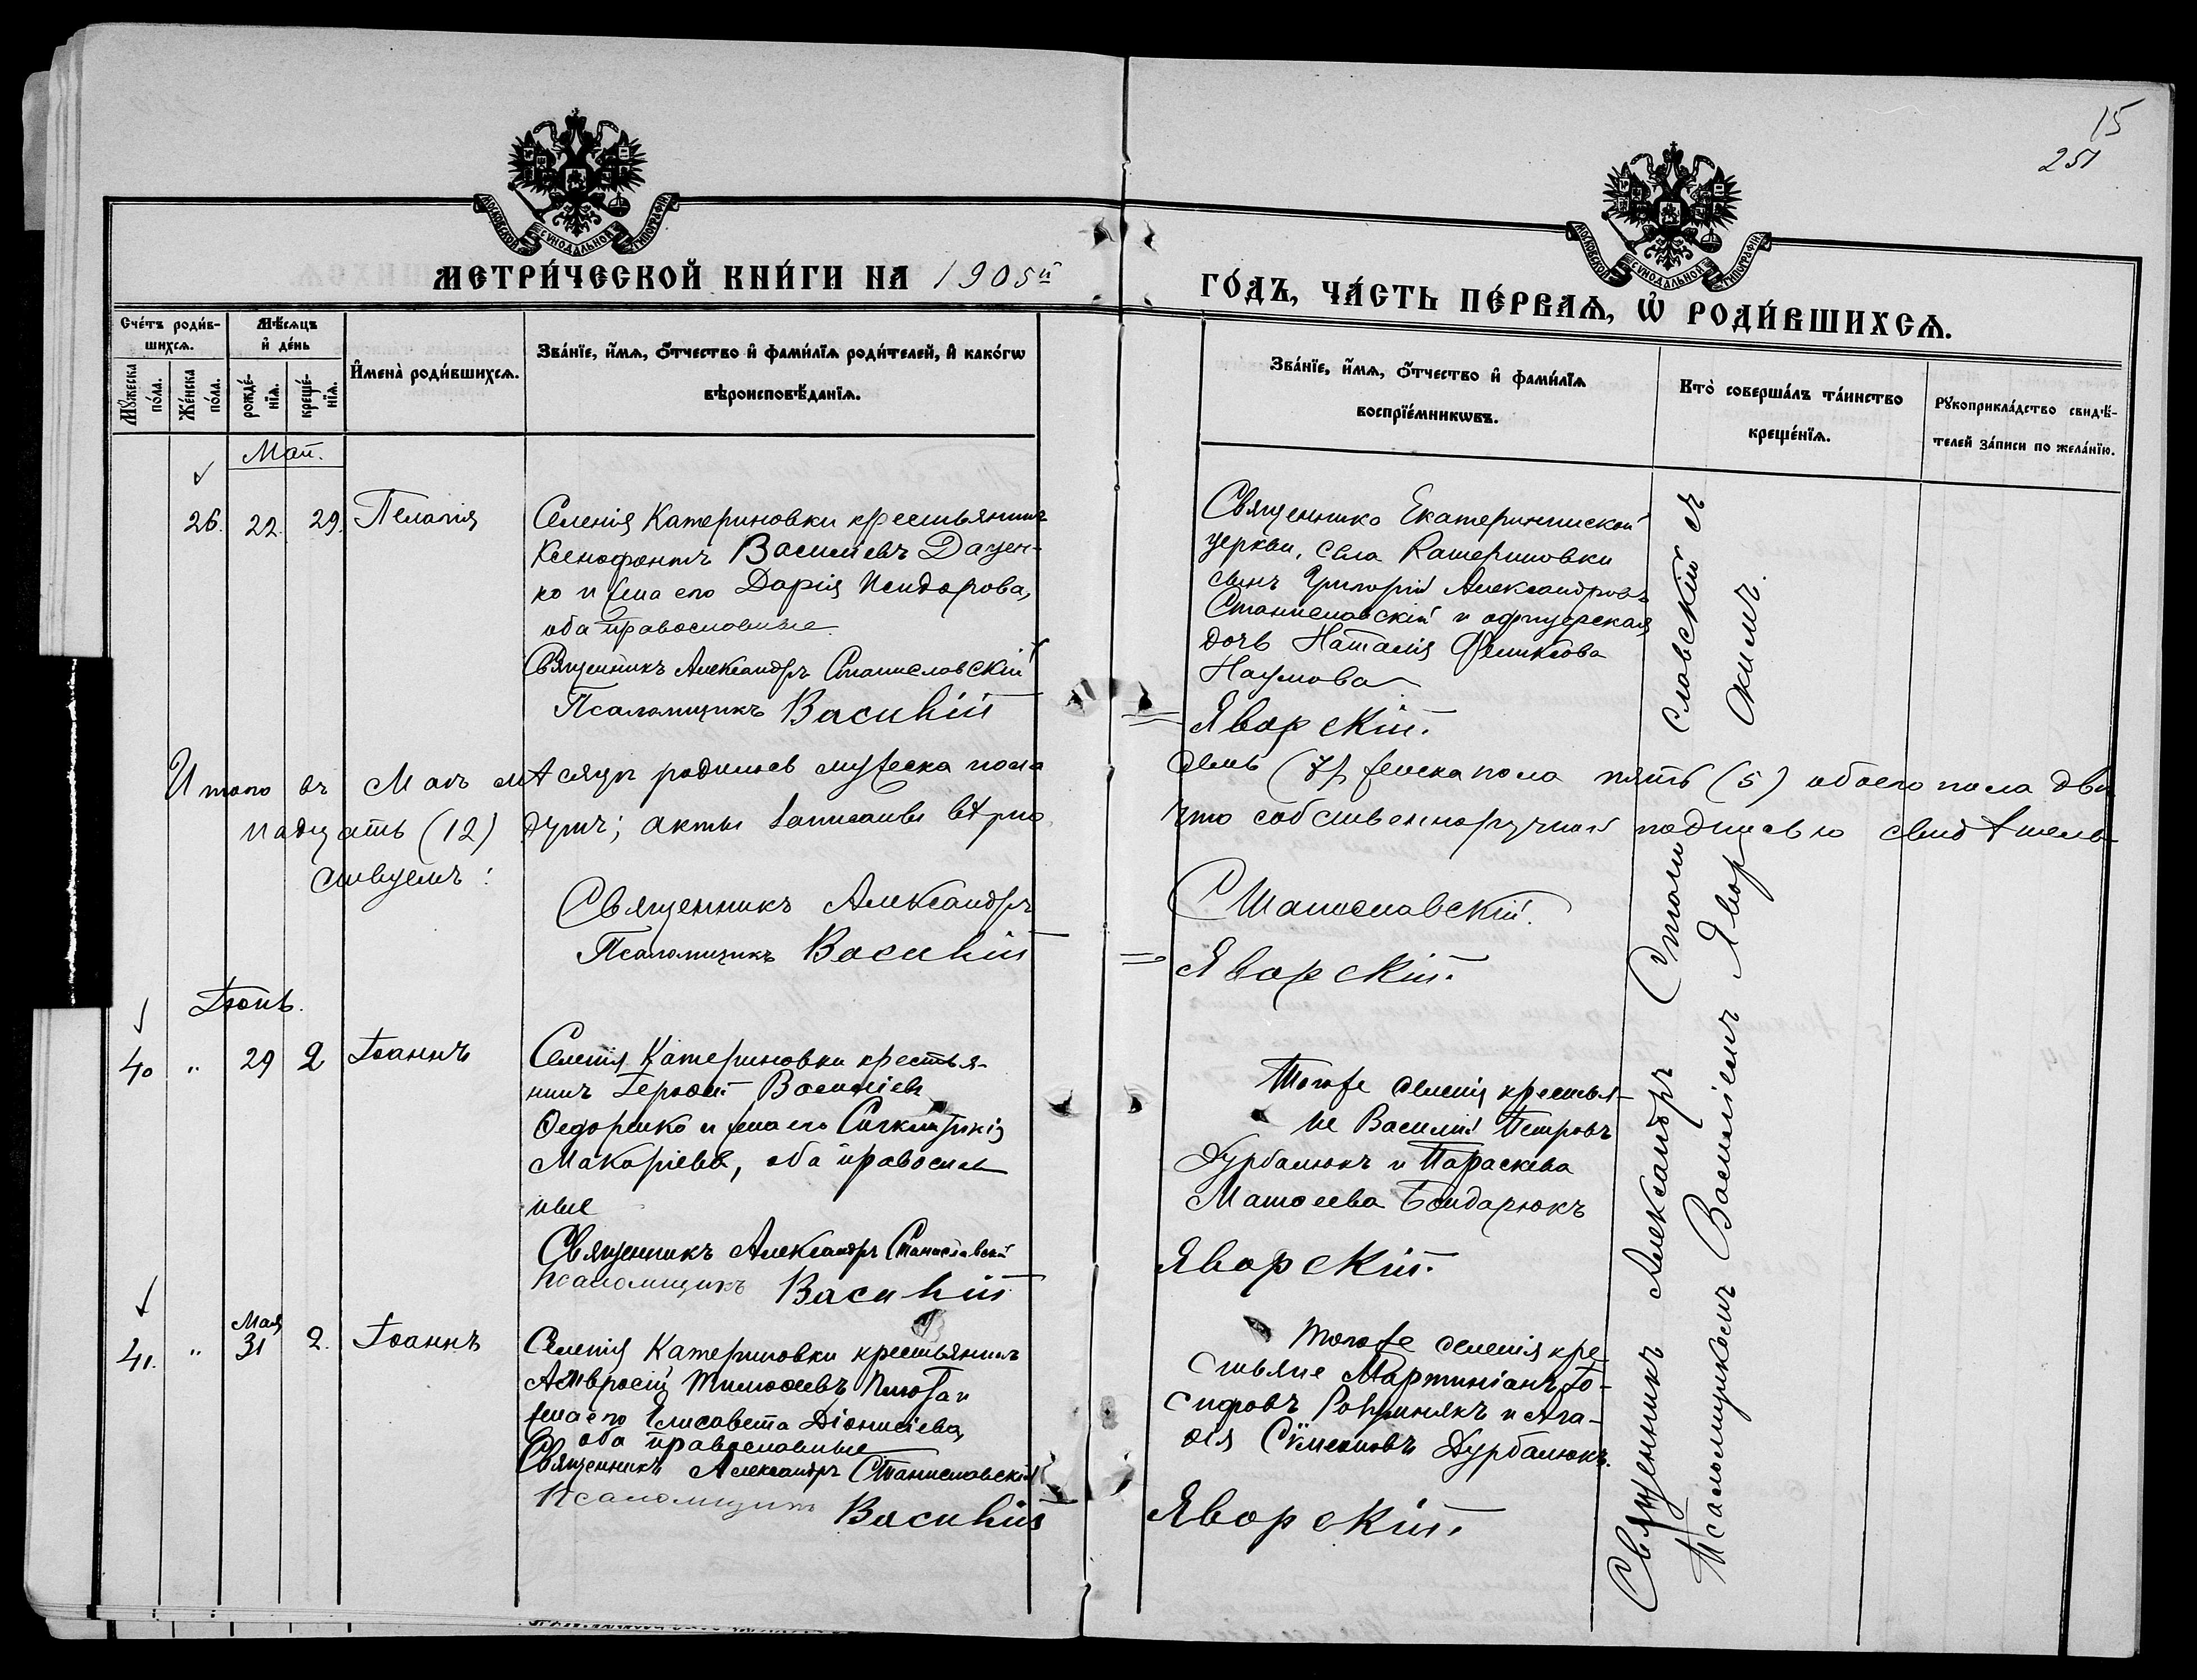 15
251
МОСКОВСКОЙ СѴНОДАЛЬНОЙ ТИПОГРАФІИ
МОСКОВСКОЙ СѴНОДАЛЬНОЙ ТИПОГРАФІИ
МЕТРИ́ЧЕСКОЙ КНИ́ГИ НА 1905й
ГО́ДЪ, ЧА́СТЬ ПЕ́РВАѦ, Ѡ҆ РОДИ́ВШИХСѦ.
Сче́тъ роди́в-
шихсѧ.
Мꙋ́жеска по́ла.
Же́нска по́ла.
Мѣ́сѧцъ
и҆ де́нь
рожде́-
нїѧ.
креще́-
нїѧ.
И҆мена̀ роди́вшихсѧ.
Зва́нїе, и҆́мѧ, ѻ҆́тчество и҆ фами́лїѧ роди́телей, и҆ како́гѡ
вѣроисповѣ́данїѧ.
Зва́нїе, и҆́мѧ, ѻ҆́тчество и҆ фами́лїѧ
воспрїе́мникѡвъ.
Кто̀ соверша́лъ та́инство
креще́нїѧ.
Рꙋкоприкла́дство свидѣ́-
телей за́писи по жела́нїю.
Май.
26. 22. 29. Пелагія
Селенія Катериновки крестьянинъ
Ксенофонтъ Василіевъ Дацен-
ко и жена его Дарія Исидорова,
оба православные.
Священникъ Александръ Станиславскій
Псаломщикъ Василій
Священника Екатерининской
церкви, села Катериновки
сынъ Григорій Александровъ
Станиславскій и офицерская
дочь Наталія Феликсова
Наумова
Яворскій.
Итого въ Маѣ мѣсяцѣ родилось мужеска пола
семь (7), женска пола пять (5) обоего пола две
надцать (12) душъ; акты записаны вѣрно
что собственноручной подписью свидѣтель-
ствуемъ:
Священникъ Александръ
Станиславскій.
Псаломщикъ Василій
Яворскій.
Іюнь.
40 " 29 2 Іоаннъ
Селенія Катериновки крестья-
нинъ Василіевъ
Федоренко и жена его Синклитикія
Макаріева, оба православ
ные
Священникъ Александръ Станиславскій
Псаломщикъ Василій
Тогоже селенія крестья-
не Василій Петровъ
Дурбалюкъ и Параскева
Матѳеева Бондарюкъ
Яворскій.
Мая
41. " 31 2. Іоаннъ
Селенія Катериновки крестьянинъ
Амвросій Тимоѳеевъ и
жена его Елисавета Діонисіева,
оба православные
Священникъ Александръ Станиславскій
Псаломщикъ Василій
Тогоже селенія кре
стьяне Мартиніанъ Іо-
сифовъ и Ага-
ѳія Сѵмеонова Дурбалюкъ.
Яворскій.
Священникъ Александръ Станиславскій съ
Псаломщикомъ Василіемъ Яворскимъ.